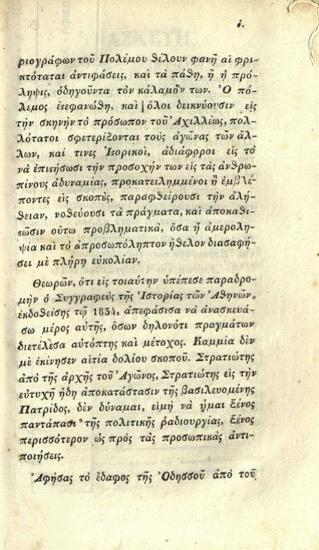 ί.
ριογράφων τοῦ Πολέμου θέλουν φανῆ αἱ φρι-
κτόταται ἀντιφάσεις, καὶ τὰ πάθη, ἢ ἡ πρό-
ληψις, ὁδηγοῦντα τὸν κάλαμόν των. Ὁ πό-
λεμος ἐςεφανώθη, καὶ ὅλοι δεικνύουσιν εἰς
τὴν σκηνὴν τὸ πρόσωπον τοῦ Ἀχιλλέως, πολ-
λότατοι σφετερίζονται τοὺς ἀγῶνας τῶν ἄλ-
λων, καὶ τινες Ἱςορικοὶ, ἀδιάφοροι εἰς τὸ
νὰ ἐπιςήσωσι τὴν προσοχήν των εἰς τὰς ἀνθρω-
πίνους ἀδυναμίας, προκατειλημμένοι ἢ ἐμβλέ-
ποντες εἰς σκοπὺς, παραφθείρουσι τὴν ἀλή-
θειαν, νοθεύουσι τὰ πράγματα, καὶ ἀποκαθι-
ςῶσιν οὕτω προβληματικὰ, ὅσα ἡ ἀμερολη-
ψία καὶ τὸ ἀπροσωπόληπτον ἤθελον διασαφή-
σει μὲ πλήρη εὐκολίαν.
Θεωρῶν, ὅτι εἰς τοιαύτην ὑπέπεσε παραδρο-
μὴν ὁ Συγγραφεὺς τῆς Ἱστορίας τῶν Ἀθηνῶν,
ἐκδοθείσης τῷ 1834, ἀπεφάσισα νὰ ἀνασκευά-
σω μέρος αὐτῆς, ὅσων δηλονότι πραγμάτων
διετέλεσα αὐτόπτης καὶ μέτοχος. Καμμία δὲν
μὲ ἐκίνησεν αἰτία δολίου σκοποῦ. Στρατιώτης
ἀπὸ τῆς ἀρχῆς τοῦ Ἀγῶνος, Στρατιώτης εἰς τὴν
εὐτυχῆ ἤδη ἀποκατάστασιν τῆς βασιλευομένης
Πατρίδος, δὲν δύναμαι, εἰμὴ νὰ ἦμαι ξένος
παντάπασι τῆς πολιτικῆς ῥαδιουργίας, ξένος
περισσότερον ὡς πρὸς τὰς προσωπικὰς ἀντι-
ποιήσεις.
Ἀφήσας τὸ ἔδαφος τῆς Ὀδησσοῦ ἀπὸ τοῦ